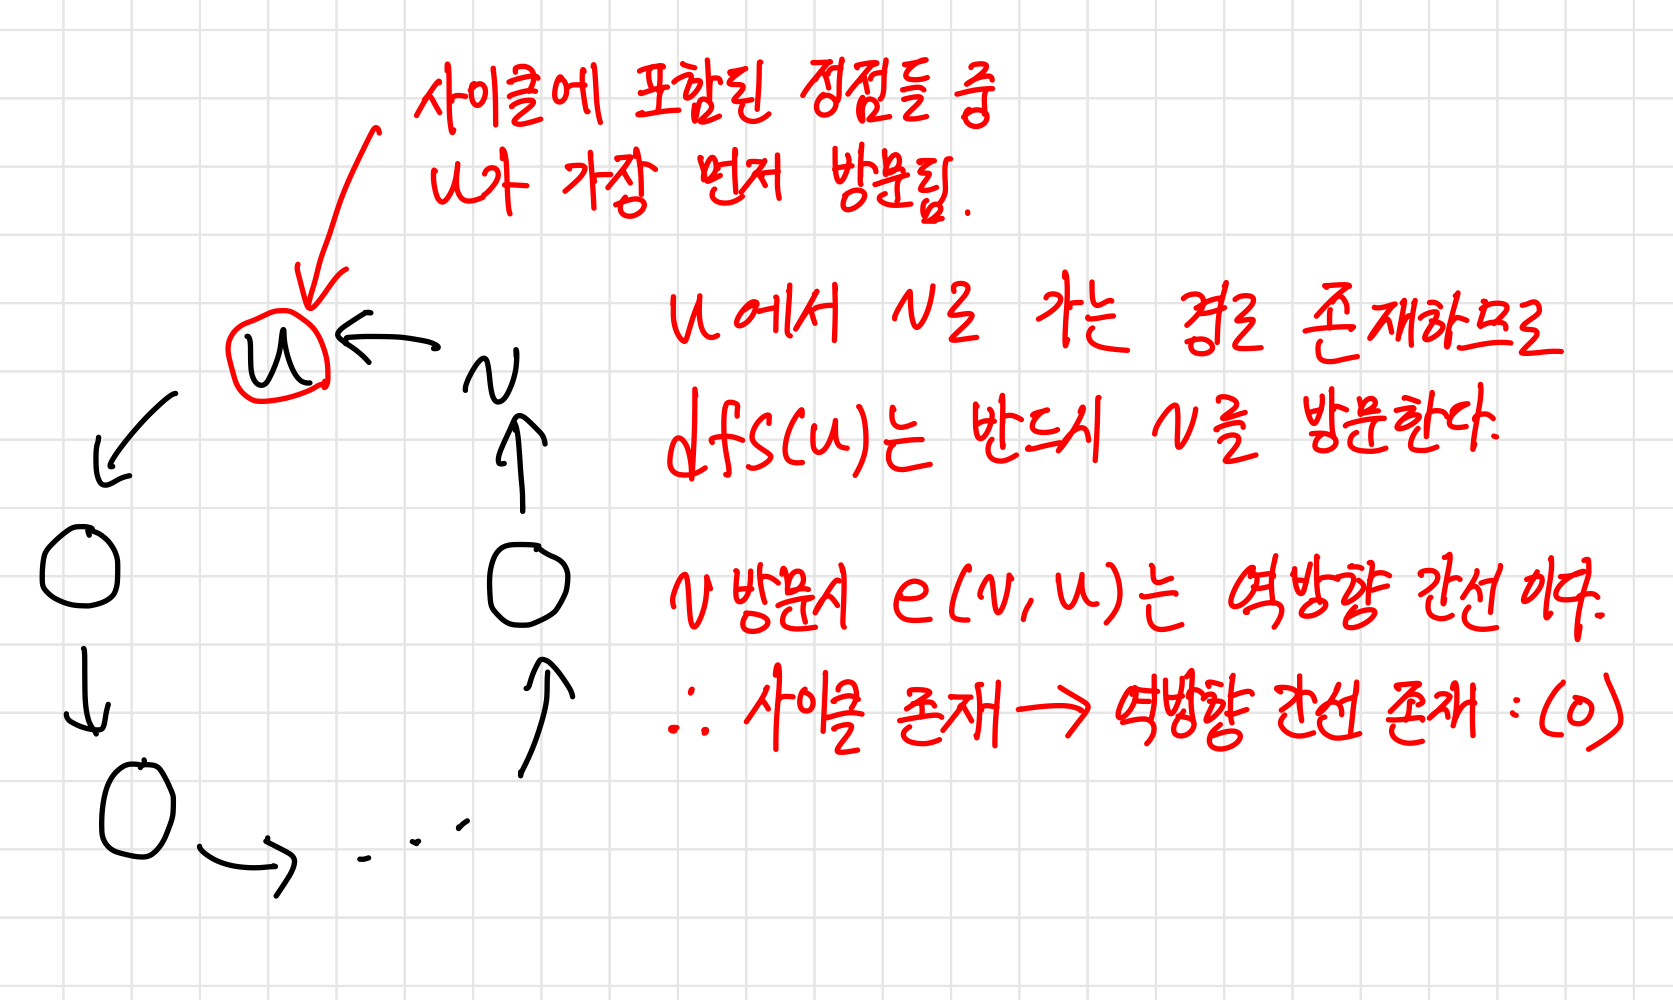 사이클에 포함된 정점들 중
u가 가장 먼저 방문됨.
u에서 v로 가는 경로 존재하므로
dfs(u)는 반드시 v를 방문한다.
v 방문시 e(v, u)는 역방향 간선이다.
∴ 사이클 존재 → 역방향 간선 존재 : (O)
u
v